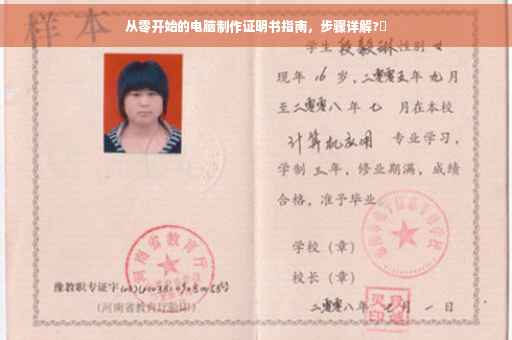 从零开始的电脑制作证明书指南，步骤详解?
样本
学生 段毅琳 性别 女
现年 16 岁，二零零五年 九 月
至二零零八 年 七 月在本校
计算机应用 专业学习，
学制 三 年，修业期满，成绩
合格，准予毕业
学校（章）
校长（章）
二零零八 年 七 月 一 日
河南省教育厅
豫教职专证字
（河南省教育厅验印）